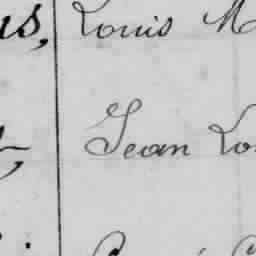 us, Louis M
Jean Lo